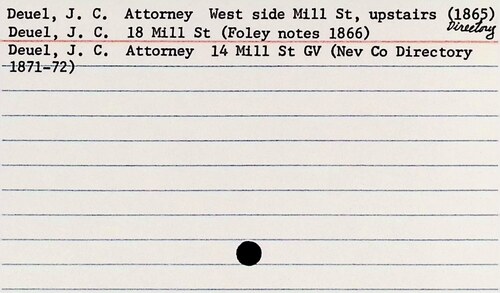 Deuel, J. C. Attorney West side Mill St, upstairs (1865)
Directory
Deuel, J. C. 18 Mill St (Foley notes 1866)
Deuel, J. C. Attorney 14 Mill St GV (Nev Co Directory
1871-72)